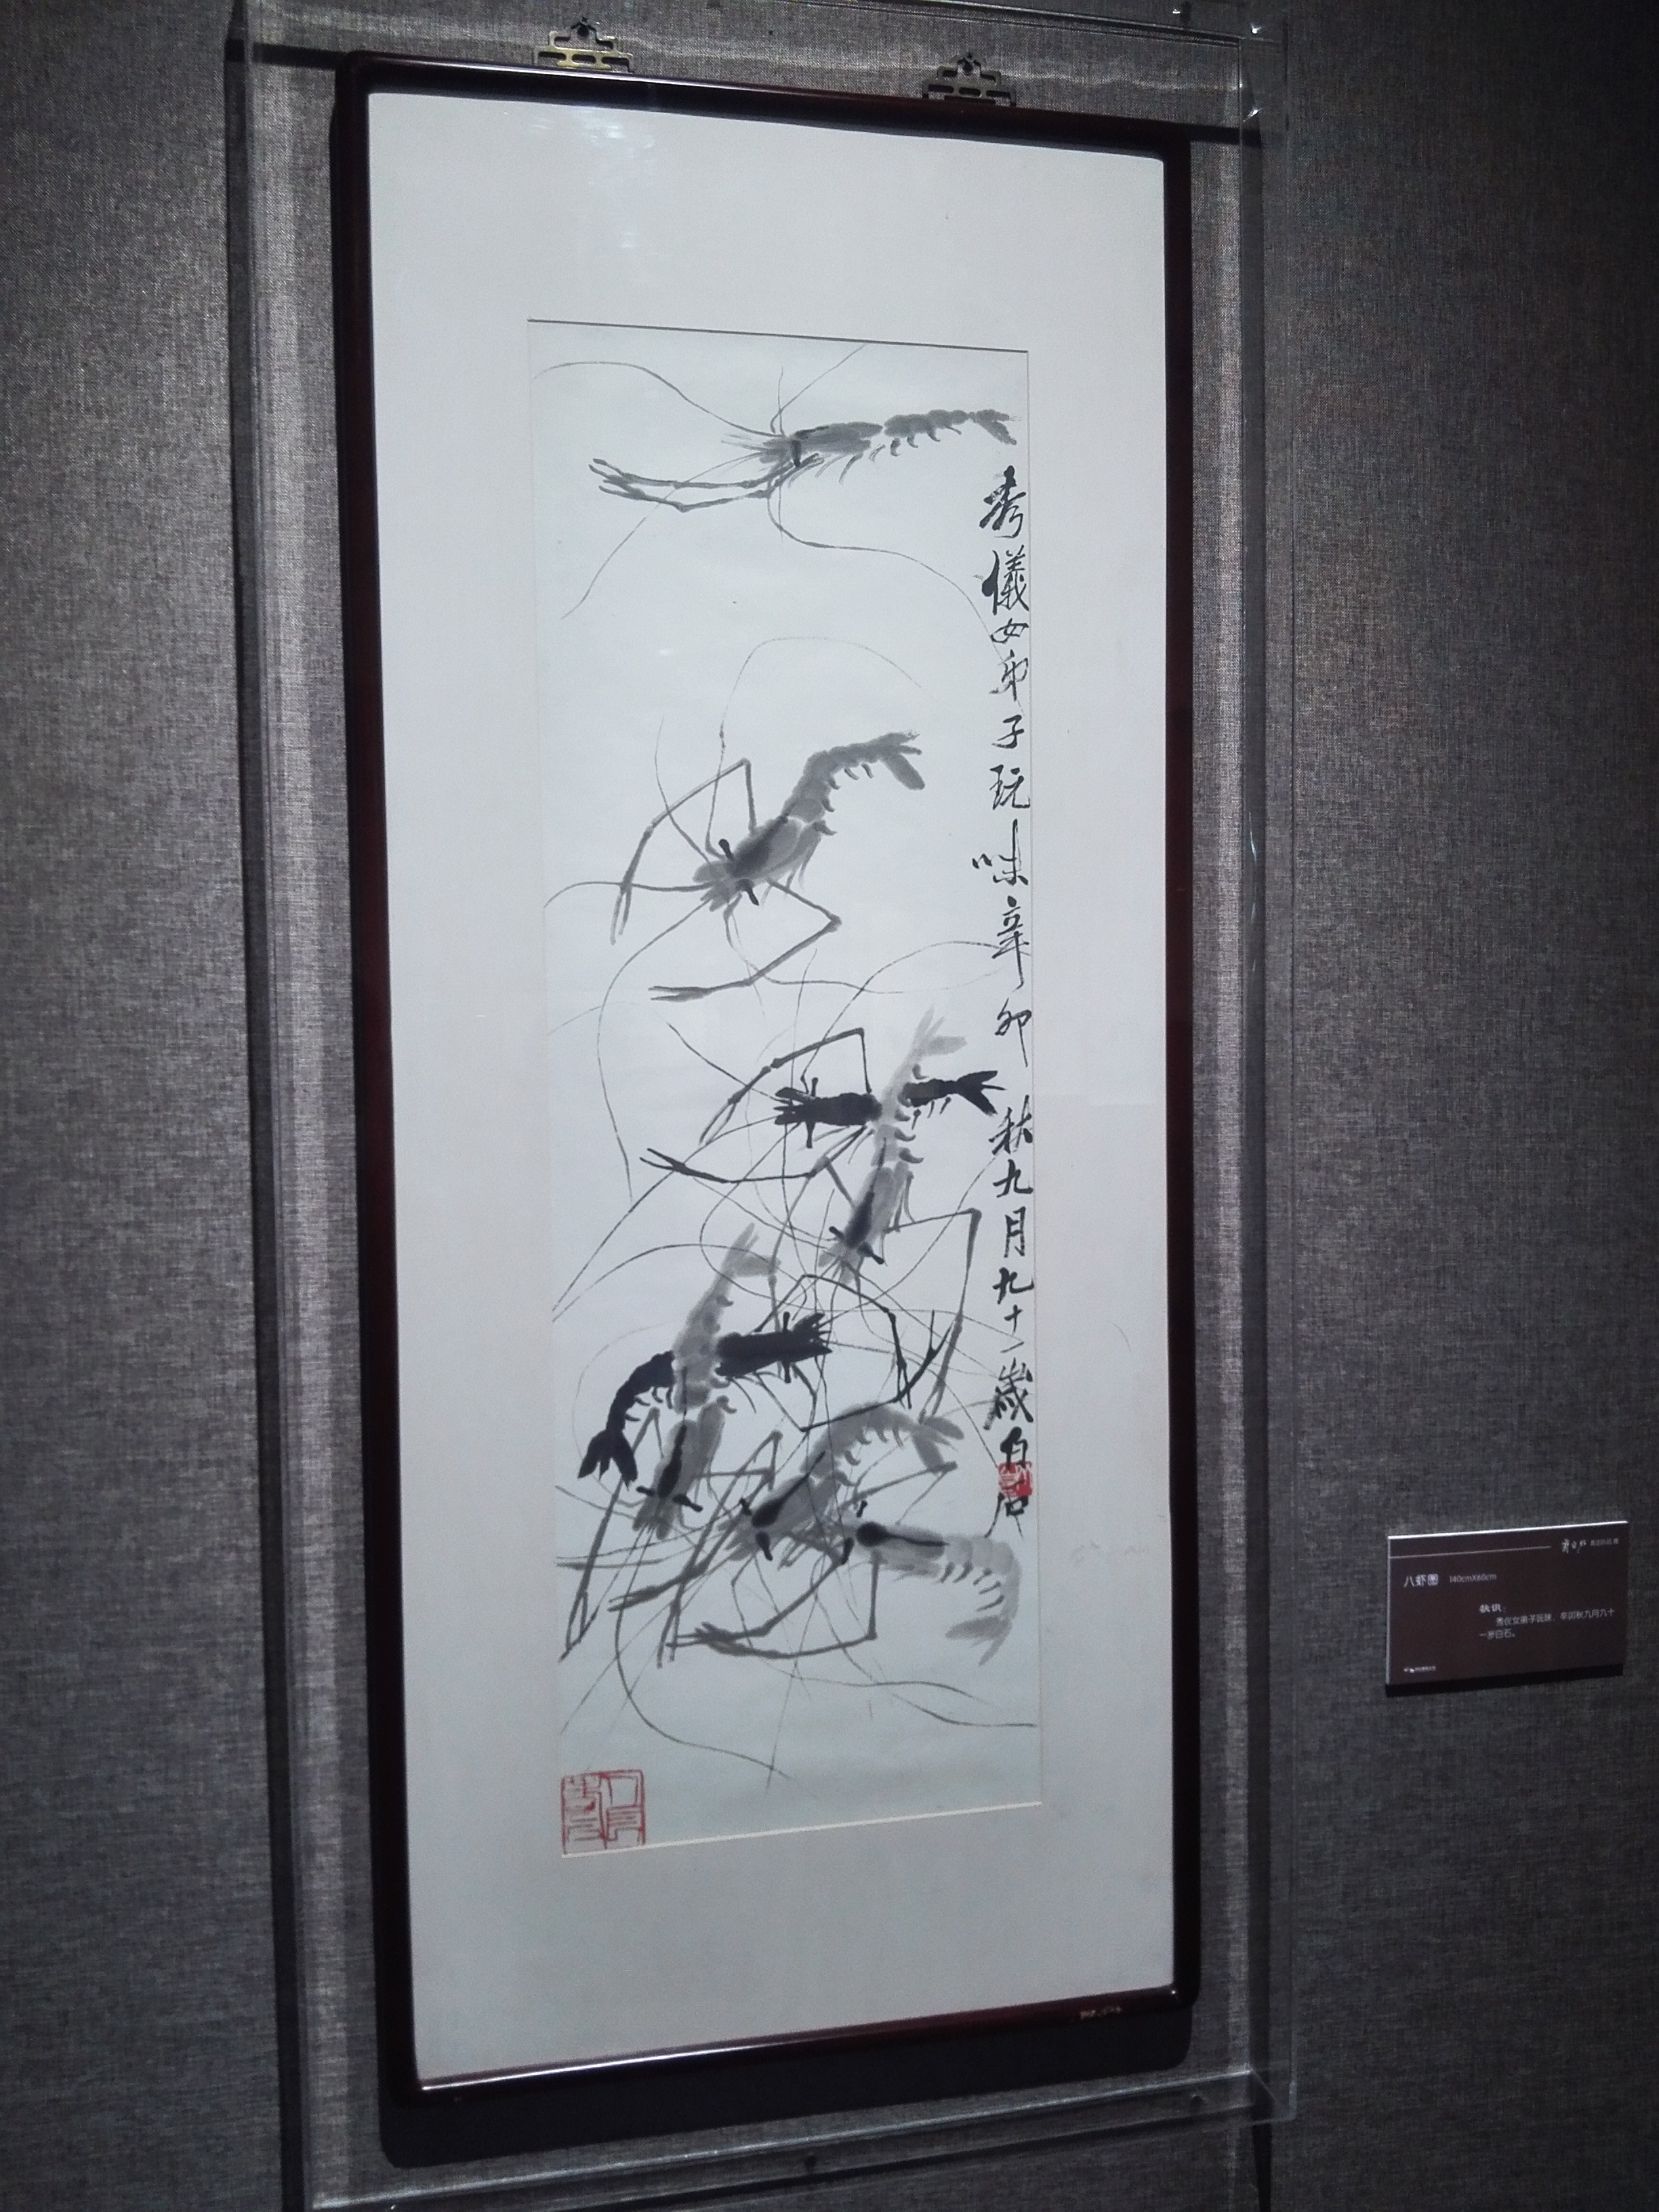 秀儀女弟子玩味辛卯秋九月九十一歲白石
八虾图 140cmX60cm
款识：
秀仪女弟子玩味，辛卯秋九月九十
一岁白石。